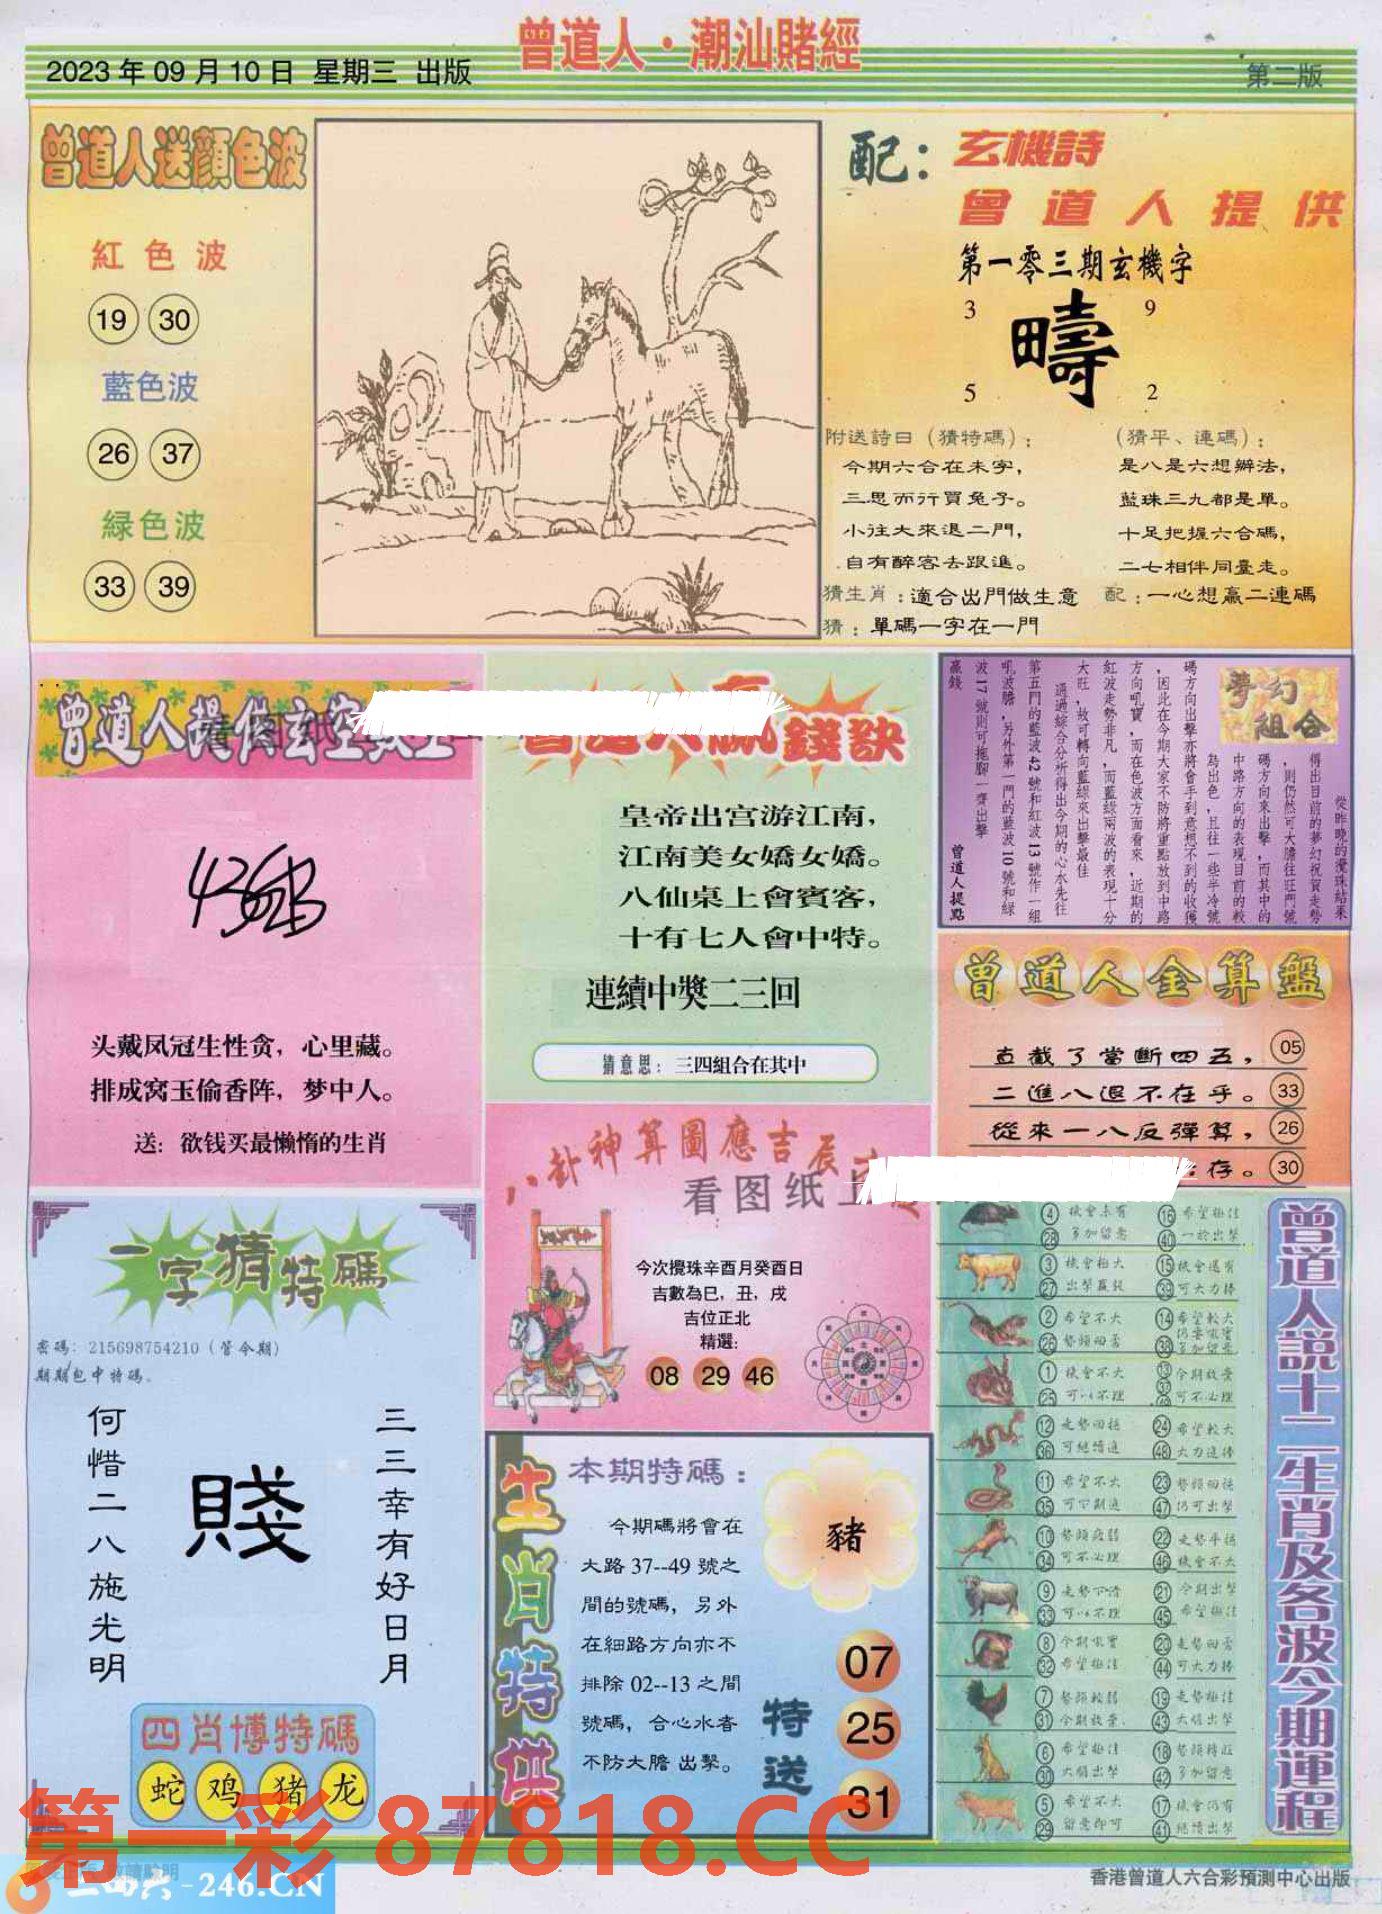 曾道人·潮汕賭經
2023年09月10日 星期三 出版
第二版
曾道人送顏色波
紅色波
19 30
藍色波
26 37
緑色波
33 39
配：玄機詩
曾道人提供
第一零三期玄機字
3 9
疇
5 2
附送詩曰（猜特碼）：
今期六合在未字，
三思而行買兔子。
小往大來退二門，
自有醉客去跟進。
猜生肖：適合出門做生意
猜：單碼一字在一門
（猜平、連碼）：
是八是六想辦法，
藍珠三九都是單。
十足把握六合碼，
二七相伴同臺走。
配：一心想贏二連碼
曾道人提供玄空
头戴凤冠生性贪，心里藏。
排成窝玉偷香阵，梦中人。
送：欲钱买最懒惰的生肖
錢訣
皇帝出宫游江南，
江南美女嬌女嬌。
八仙桌上會賓客，
十有七人會中特。
連續中獎二三回
猜意思：三四組合在其中
夢幻組合
從昨晚的攪珠結果
得出目前的夢幻祝賀走勢
，則仍然可大膽往旺門號
碼方向來出擊，而其中的
中路方向的表現目前的較
為出色，且往一些半冷號
碼方向出擊亦將會手到意想不到的收獲
，因此在今期大家不防將重點放到中路
方向吼寶，而在色波方面看來，近期的
紅波走勢非凡，而藍綠兩波的表現十分
大旺，故可轉向藍綠來出擊最佳
通過綜合分析得出今期的心水先往
第五門的藍波42號和紅波13號作一組
吼波膽，另外第一門的藍波10號和綠
波17號則可拖腳一齊出擊
贏錢
曾道人提點
曾道人金算盤
直截了當斷四五， 05
二進八退不在乎。 33
從來一八反彈算， 26
存。 30
八卦神算圖應吉辰
看图纸上
今次攪珠辛酉月癸酉日
吉數為巳，丑，戌
吉位正北
精選：
08 29 46
一字猜特碼
密碼：215698754210（管今期）
期期包中特碼。
三三幸有好日月
賤
何惜二八施光明
四肖博特碼
蛇 鸡 猪 龙
生肖特供
本期特碼：
今期碼將會在
大路37--49號之
間的號碼，另外
在細路方向亦不
排除02--13之間
號碼，合心水者
不防大膽出擊。
豬
特送
07
25
31
曾道人説十二生肖及各波今期運程
4 機會未有 16 希望極佳
28 多加留意 40 一於出擊
3 機會極大 15 機會還有
27 出擊贏錢 39 可大力捧
2 希望不大 14 希望較大
26 勢頭回落 38
1 機會不大 13 今期放棄
25 可以不理 37 可不必理
12 走勢回穩 24 希望較大
36 可繼續追 48 大力追捧
11 希望不大 23 勢頭回穩
35 可下期追 47 仍可出擊
10 勢頭疲弱 22 走勢平穩
34 可不必理 46 機會不大
9 走勢下滑 21 今期出擊
33 可以不理 45 希望極佳
8 今期吼實 20 走勢回落
32 希望極佳 44 可大力捧
7 勢頭較弱 19 走勢極佳
31 今期放棄 43 大膽出擊
6 希望極佳 18 勢頭轉旺
30 大膽出擊 42 多加留意
5 希望不大 17 機會仍有
29 留意即可 41 繼續出擊
第一彩 87818.CC
二四六-246.CN
香港曾道人六合彩預測中心出版